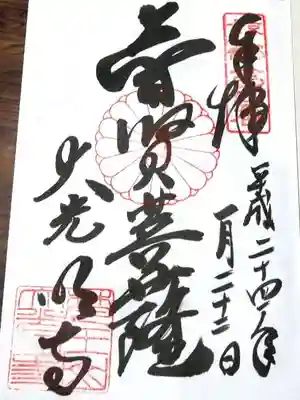 奉拝
平成二十四年
一月二十二日
普賢菩薩
大光明寺